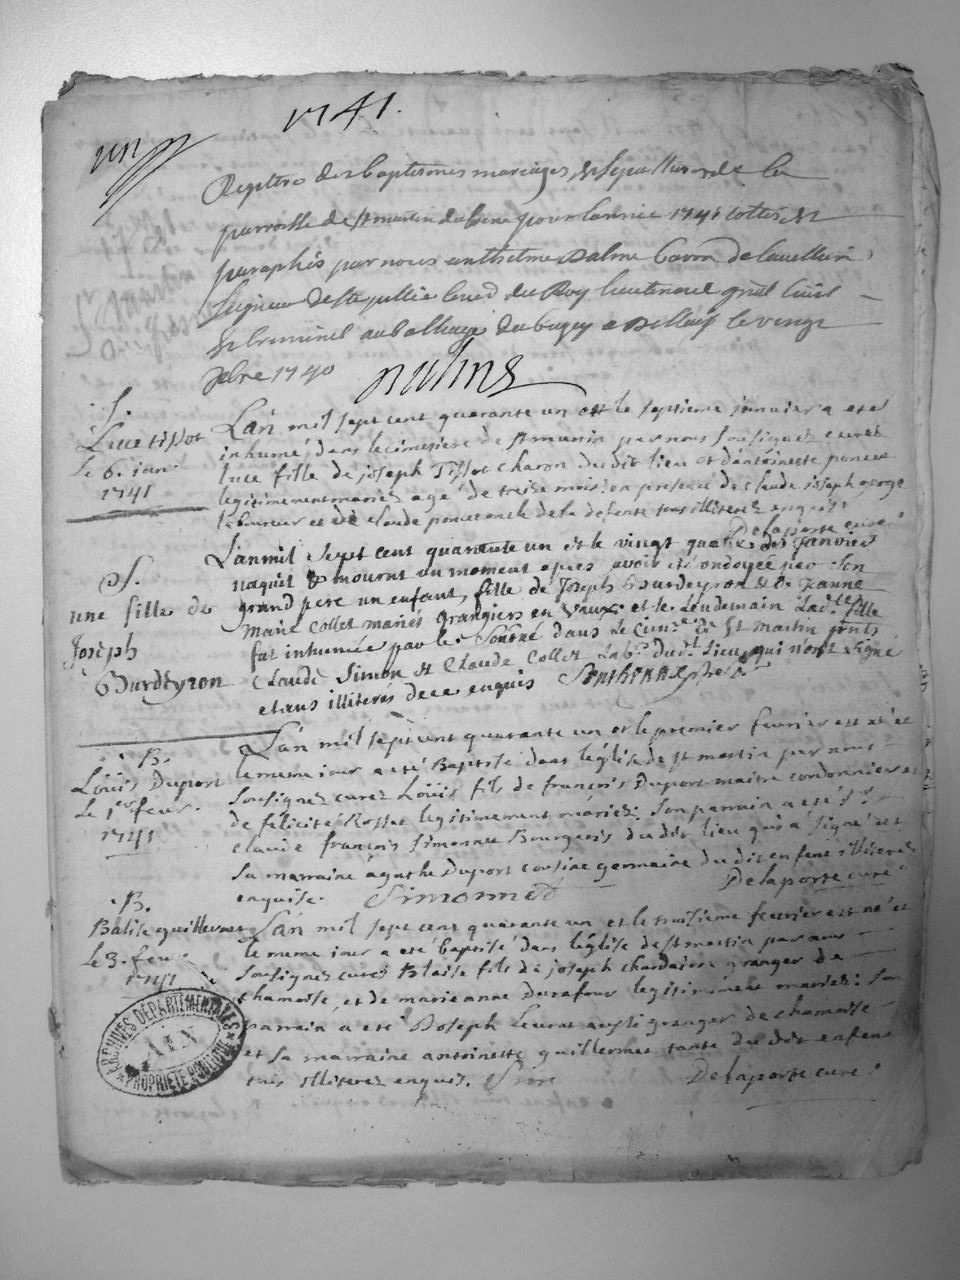 1741.
un
Registre des baptesmes mariages, & sepultures de la
parroisse de st martin du pour l'année 1741 cottés &
paraphés par nous anthelme Balme baron de
seigneur de ste jullie du Roy lieutenant gnâl Civil
& Criminel au balliage du bugey a Belley le vingt
xbre 1740
Balme
S.
Luce tissot
le 6. ianr.
1741
L'an mil sept cent quarante un et le septieme janvier a eté
inhumé dans le cimetiere de st martin par nous soussignez curez
luce fille de joseph Tissot du dit lieu et d'antoinette
legitimement mariez agé de treise mois: en presence de claude joseph george
laboureur et de claude de la tous illiterez enquis.
Delaporte curé.
S.
une fille de
Joseph
Bourdeyron
L'an mil sept cent quarante un et le vingt quatre de Janvier
naquit & mourut un moment apres avoir eté ondoyée par son
grand pere un enfant, fille de Joseph Bourdeyron & de Jeanne
Marie Collet mariés grangiers en Vaux: et le lendemain lade. fille
fut inhumée par le Soussné dans le Cimre. de St Martin prnts
Claude Simon et Claude Collet Labrs. dudt. Lieu qui n'ont signé
etans illiterés de ce enquis
B.
Loüis Duport
le 1er feur.
1741
L'an mil sept cent quarante un et le premier fevrier est né et
le meme iour a eté Baptisé dans l'église de st martin par nous
soussignez curez Loüis fils de françois Duport maitre cordonnier et
de felicité Rosset legitimement mariez: son parrain a eté Sr.
Claude françois Simonnet Bourgeois du dit lieu qui a signé et
sa marraine agathe Duport cousine germaine du dit enfent illiterez
enquise. Simonnet Delaporte curé
B.
le 3. feur.
1741
L'an mil sept cent quarante un et le troisieme fevrier est né et
le meme iour a eté baptisé dans l'église de st martin par nous
soussignez curez Blaise fils de joseph granger de
chamoise, et de marieanne Durafour legitimement mariez: son
parrain a eté Joseph aussi granger de chamoise
et sa marraine antoinette guillermet tante du dit enfent
tous illiterez enquis. Delaporte curé.
ARCHIVES DÉPARTEMENTALES
AIN
PROPRIÉTÉ PUBLIQUE